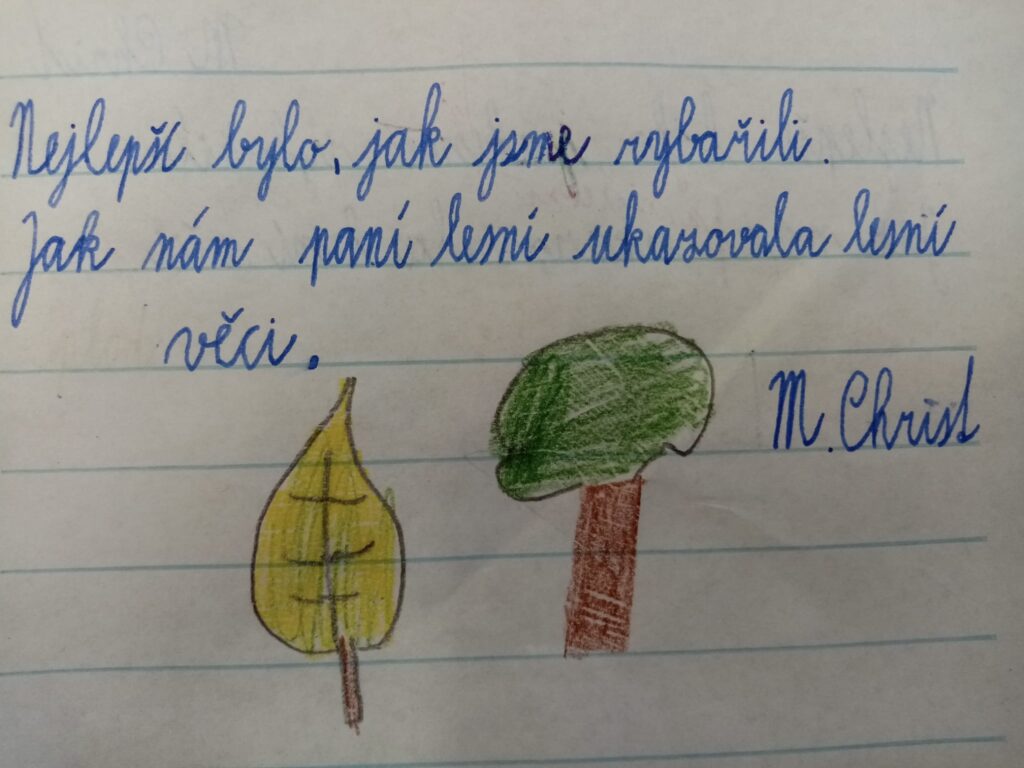 Nejlepší bylo, jak jsme rybařili.
Jak nám paní lesní ukazovala lesní
věci.
M. Christ